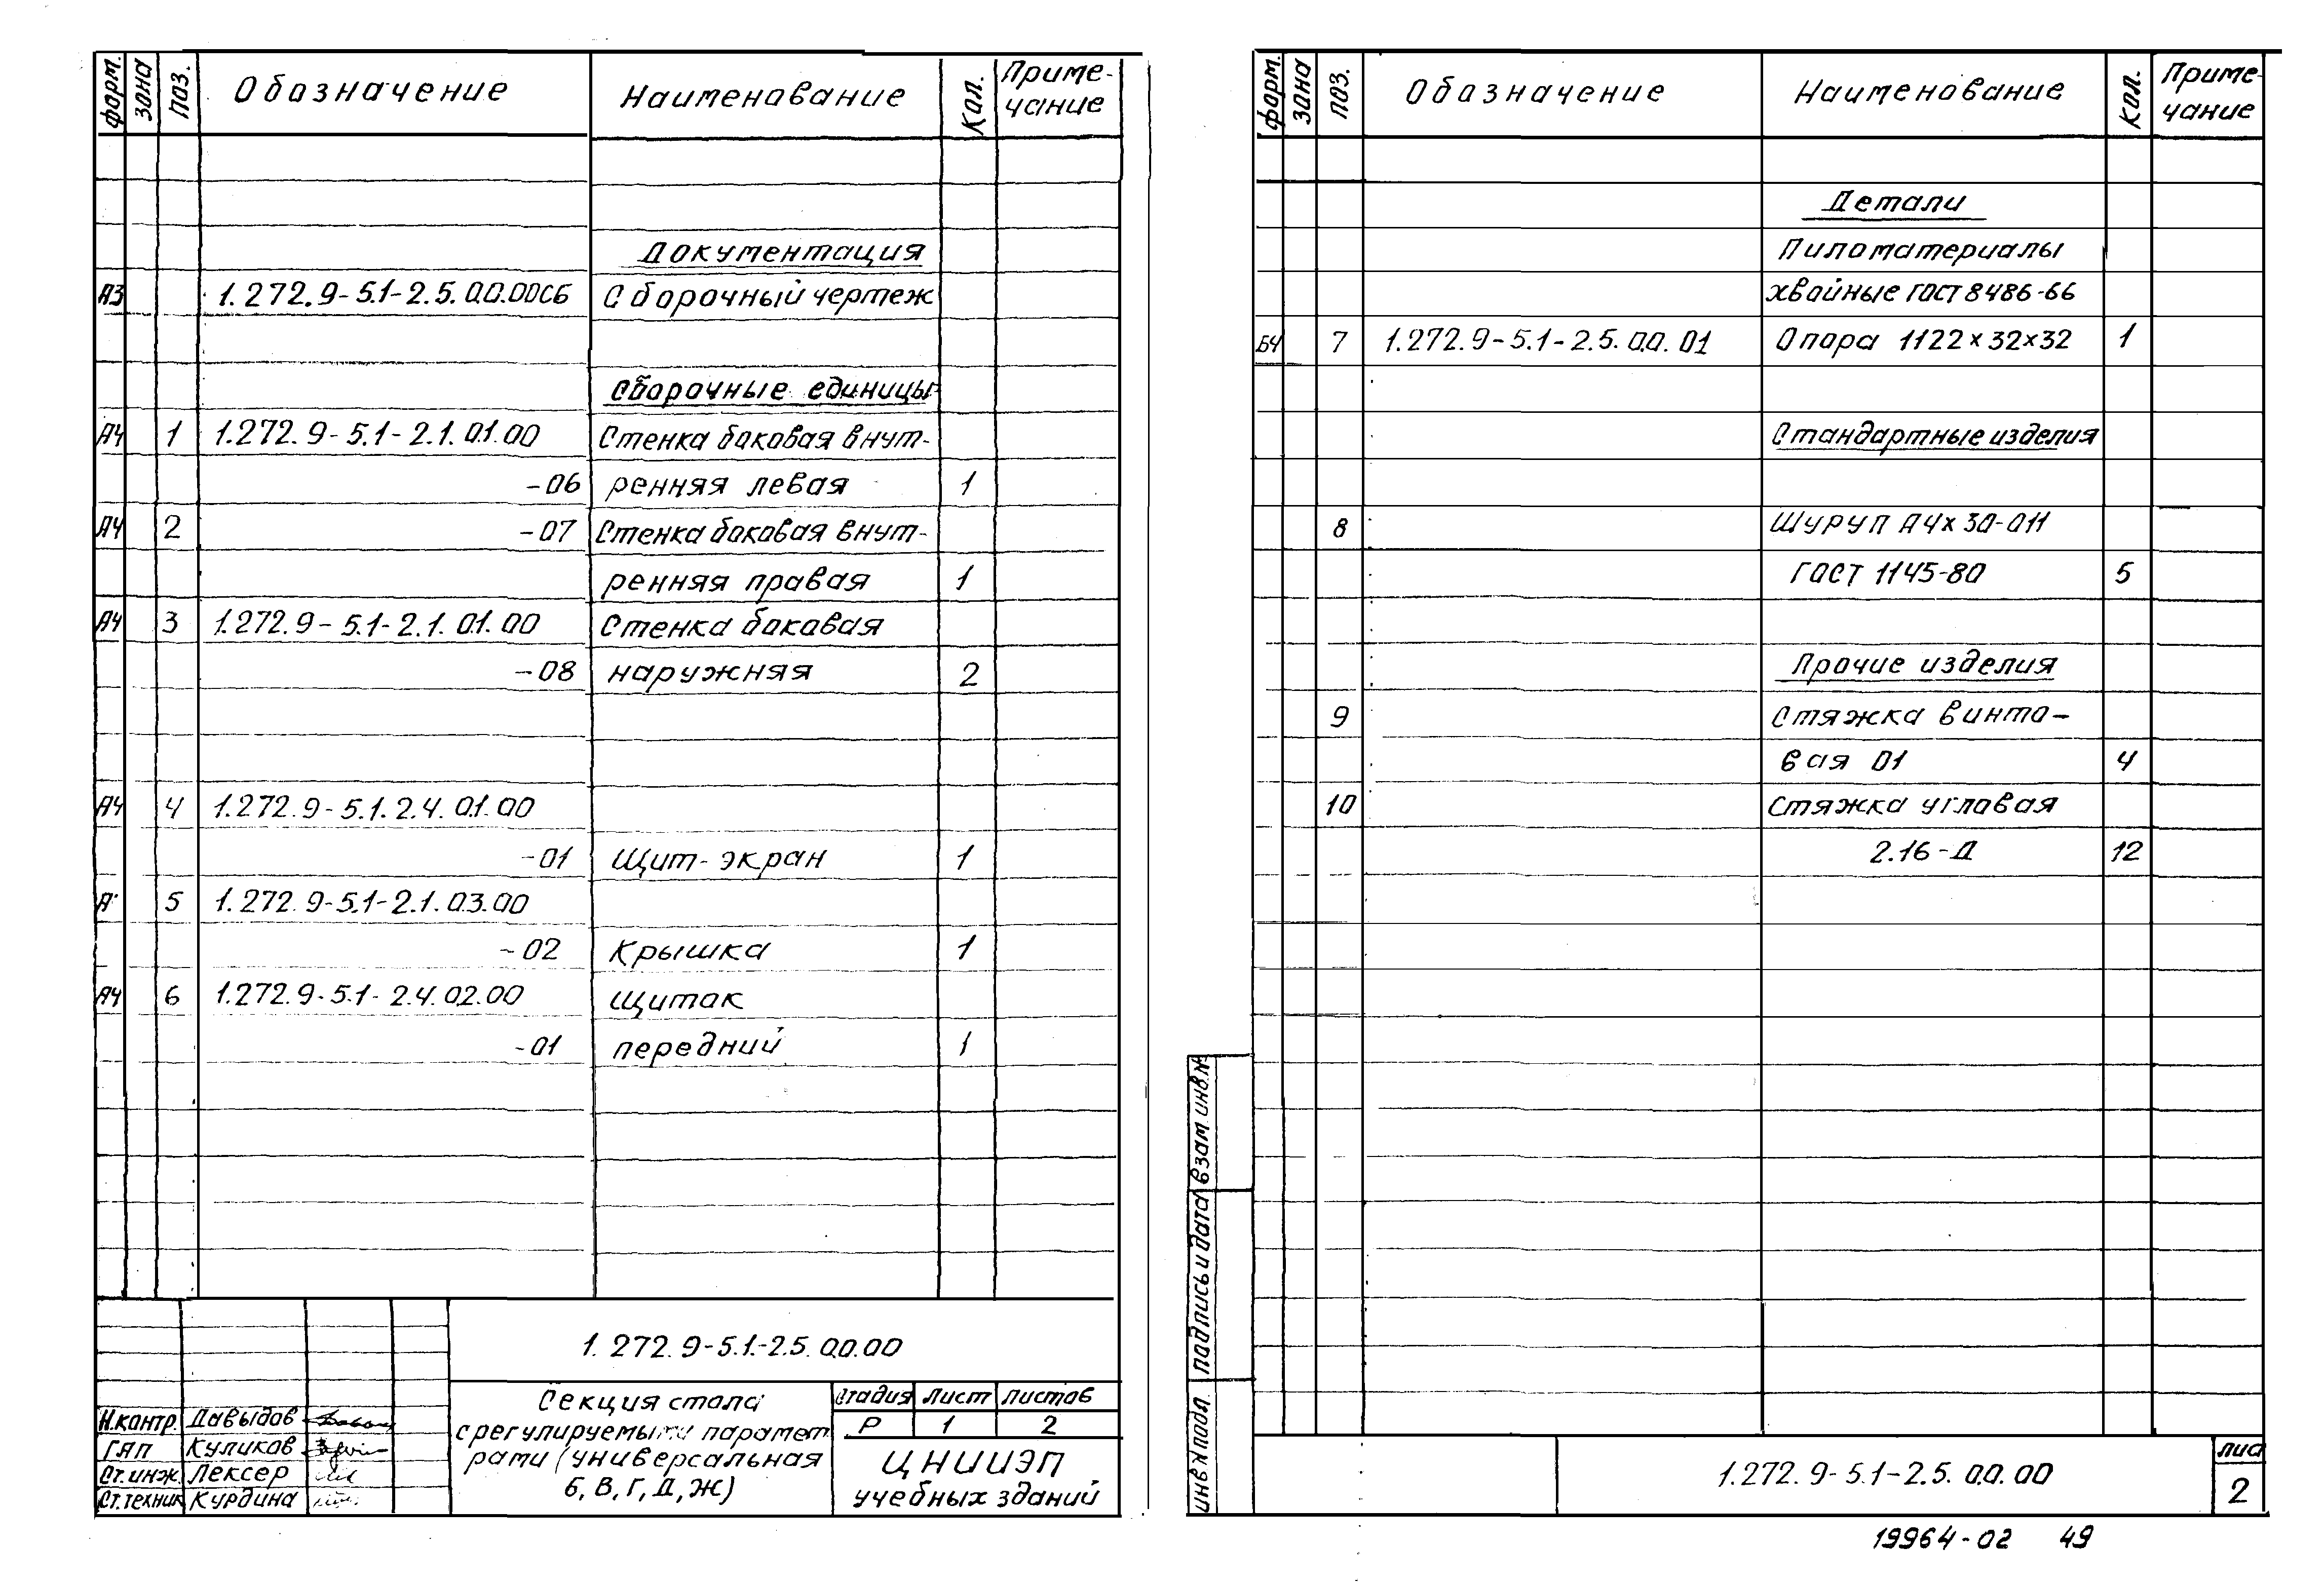 форм. зона поз. Обозначение Наименование Кол. Приме-
чание
Документация
А3 1.272.9-5.1-2.5.0.0.00СБ Сборочный чертеж
Сборочные единицы
А4 1 1.272.9-5.1-2.1.01.00 Стенка боковая внут-
-06 ренняя левая 1
А4 2 -07 Стенка боковая внут-
ренняя правая 1
А4 3 1.272.9-5.1-2.1.01.00 Стенка боковая
-08 наружняя 2
А4 4 1.272.9-5.1.2.4.01.00
-01 Щит-экран 1
А 5 1.272.9-5.1-2.1.03.00
-02 Крышка 1
А4 6 1.272.9-5.1-2.4.02.00 Щиток
-01 передний 1
1.272.9-5.1.-2.5.0.0.00
Секция стола
с регулируемыми парамет
рами (универсальная
Б, В, Г, Д, Ж)
Стадия Лист Листов
Р 1 2
ЦНИИЭП
учебных зданий
Н.контр. Давыдов
ГАП Куликов
Ст.инж. Лексер
Ст.техник Курдина
форм. зона поз. Обозначение Наименование Кол. Приме-
чание
Детали
Пиломатериалы
хвойные ГОСТ 8486-66
БЧ 7 1.272.9-5.1-2.5.0.0.01 Опора 1122×32×32 1
Стандартные изделия
8 Шуруп А4×30-011
ГОСТ 1145-80 5
Прочие изделия
9 Стяжка винто-
вая 01 4
10 Стяжка угловая
2.16-Д 12
Взам. инв.№
Подпись и дата
Инв № подл.
1.272.9-5.1-2.5.0.0.00
Лис
2
19964-02 49